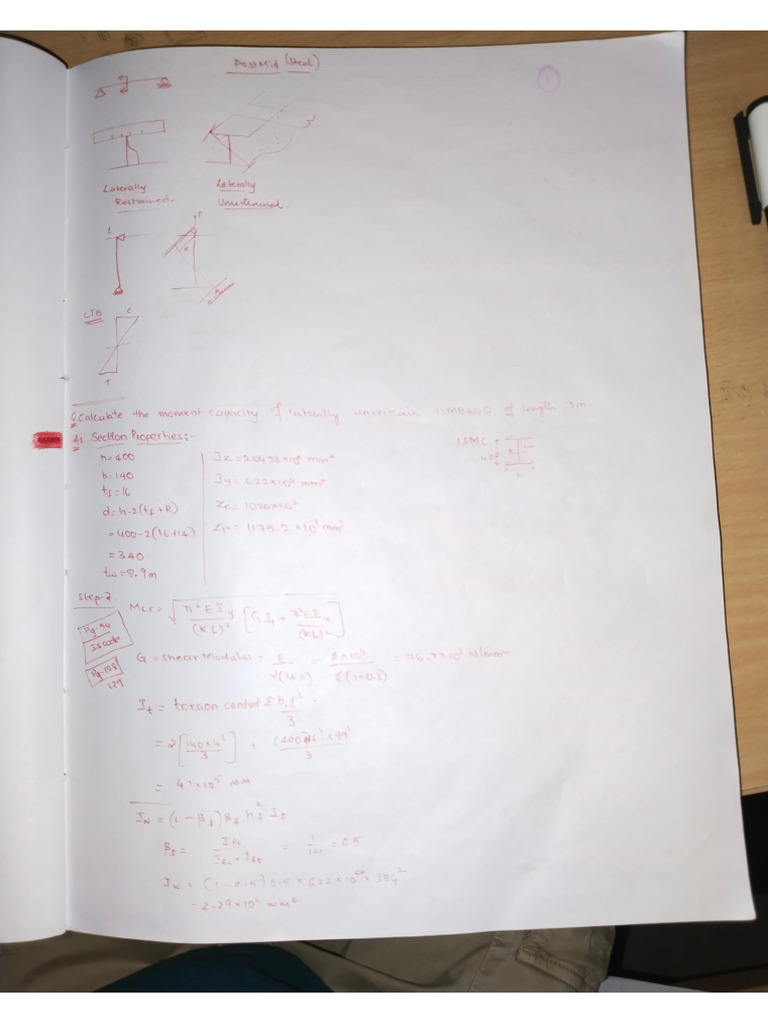 PostMid (Steel)
1
Laterally Restrained.
Laterally Unrestrained.
LTB
C
T
Q. Calculate the moment capacity of laterally unrestrain ISMB400 of length 3m.
A1. Section Properties:-
h=400
b=140
tf=16
d=h-2(tf+R)
=400-2(16+14)
=340
tw=8.9m
Ix=20458×10⁴ mm⁴
Iy=622×10⁴ mm⁴
Ze=1020×10³
Zp=1175.2×10³ mm³
ISMC
Step-2
Pg:54
IS code
Pg:128
129
Mcr=√π²EIy/(KL)² [GIt+π²EIw/(KL)²]
G = Shear Modulus = E/2(1+υ) = 2×10⁵/2(1+0.3) = 76.9×10³ N/mm²
It = torsion constant Σ bit³/3
= 2[140×16³/3] + (400-16)×8.9³/3
= 47×10⁵ mm
Iw=(1-βf)βf hf² If
βf = Ifc/Ifc+Ift = 1/1+1 = 0.5
Iw = (1-0.5)0.5×622×10⁴×384²
=2.29×10¹¹ mm⁶